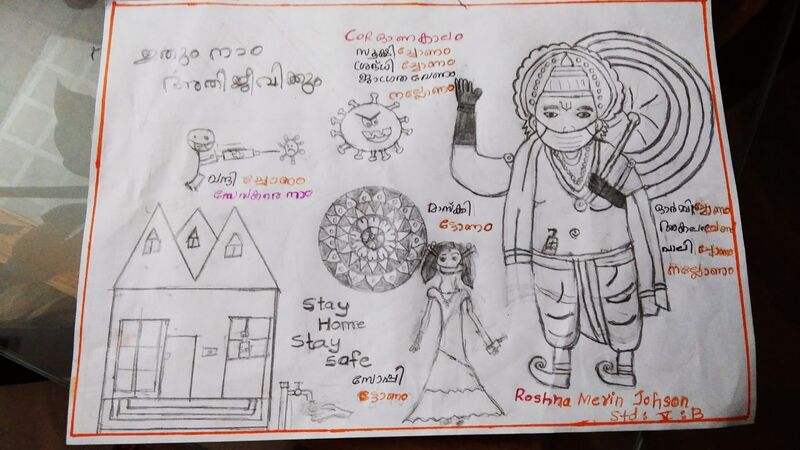 ഇതും നാം
അതിജീവിക്കും
CORഓണകാലം
സൂക്ഷിച്ചോണം
ശ്രദ്ധിച്ചോണം
ജാഗ്രത വേണം
നല്ലോണം
വന്ദിച്ചോണം
സേവകരെ നാം
മാസ്ക്കി
ട്ടോണം
ഓർമ്മിച്ചോണം
അകലംവേണം
പാലിച്ചോണം
നല്ലോണം
Stay
Home
Stay
safe
സോപ്പി
ട്ടോണം
Roshna Merin Johson
Std: V : B